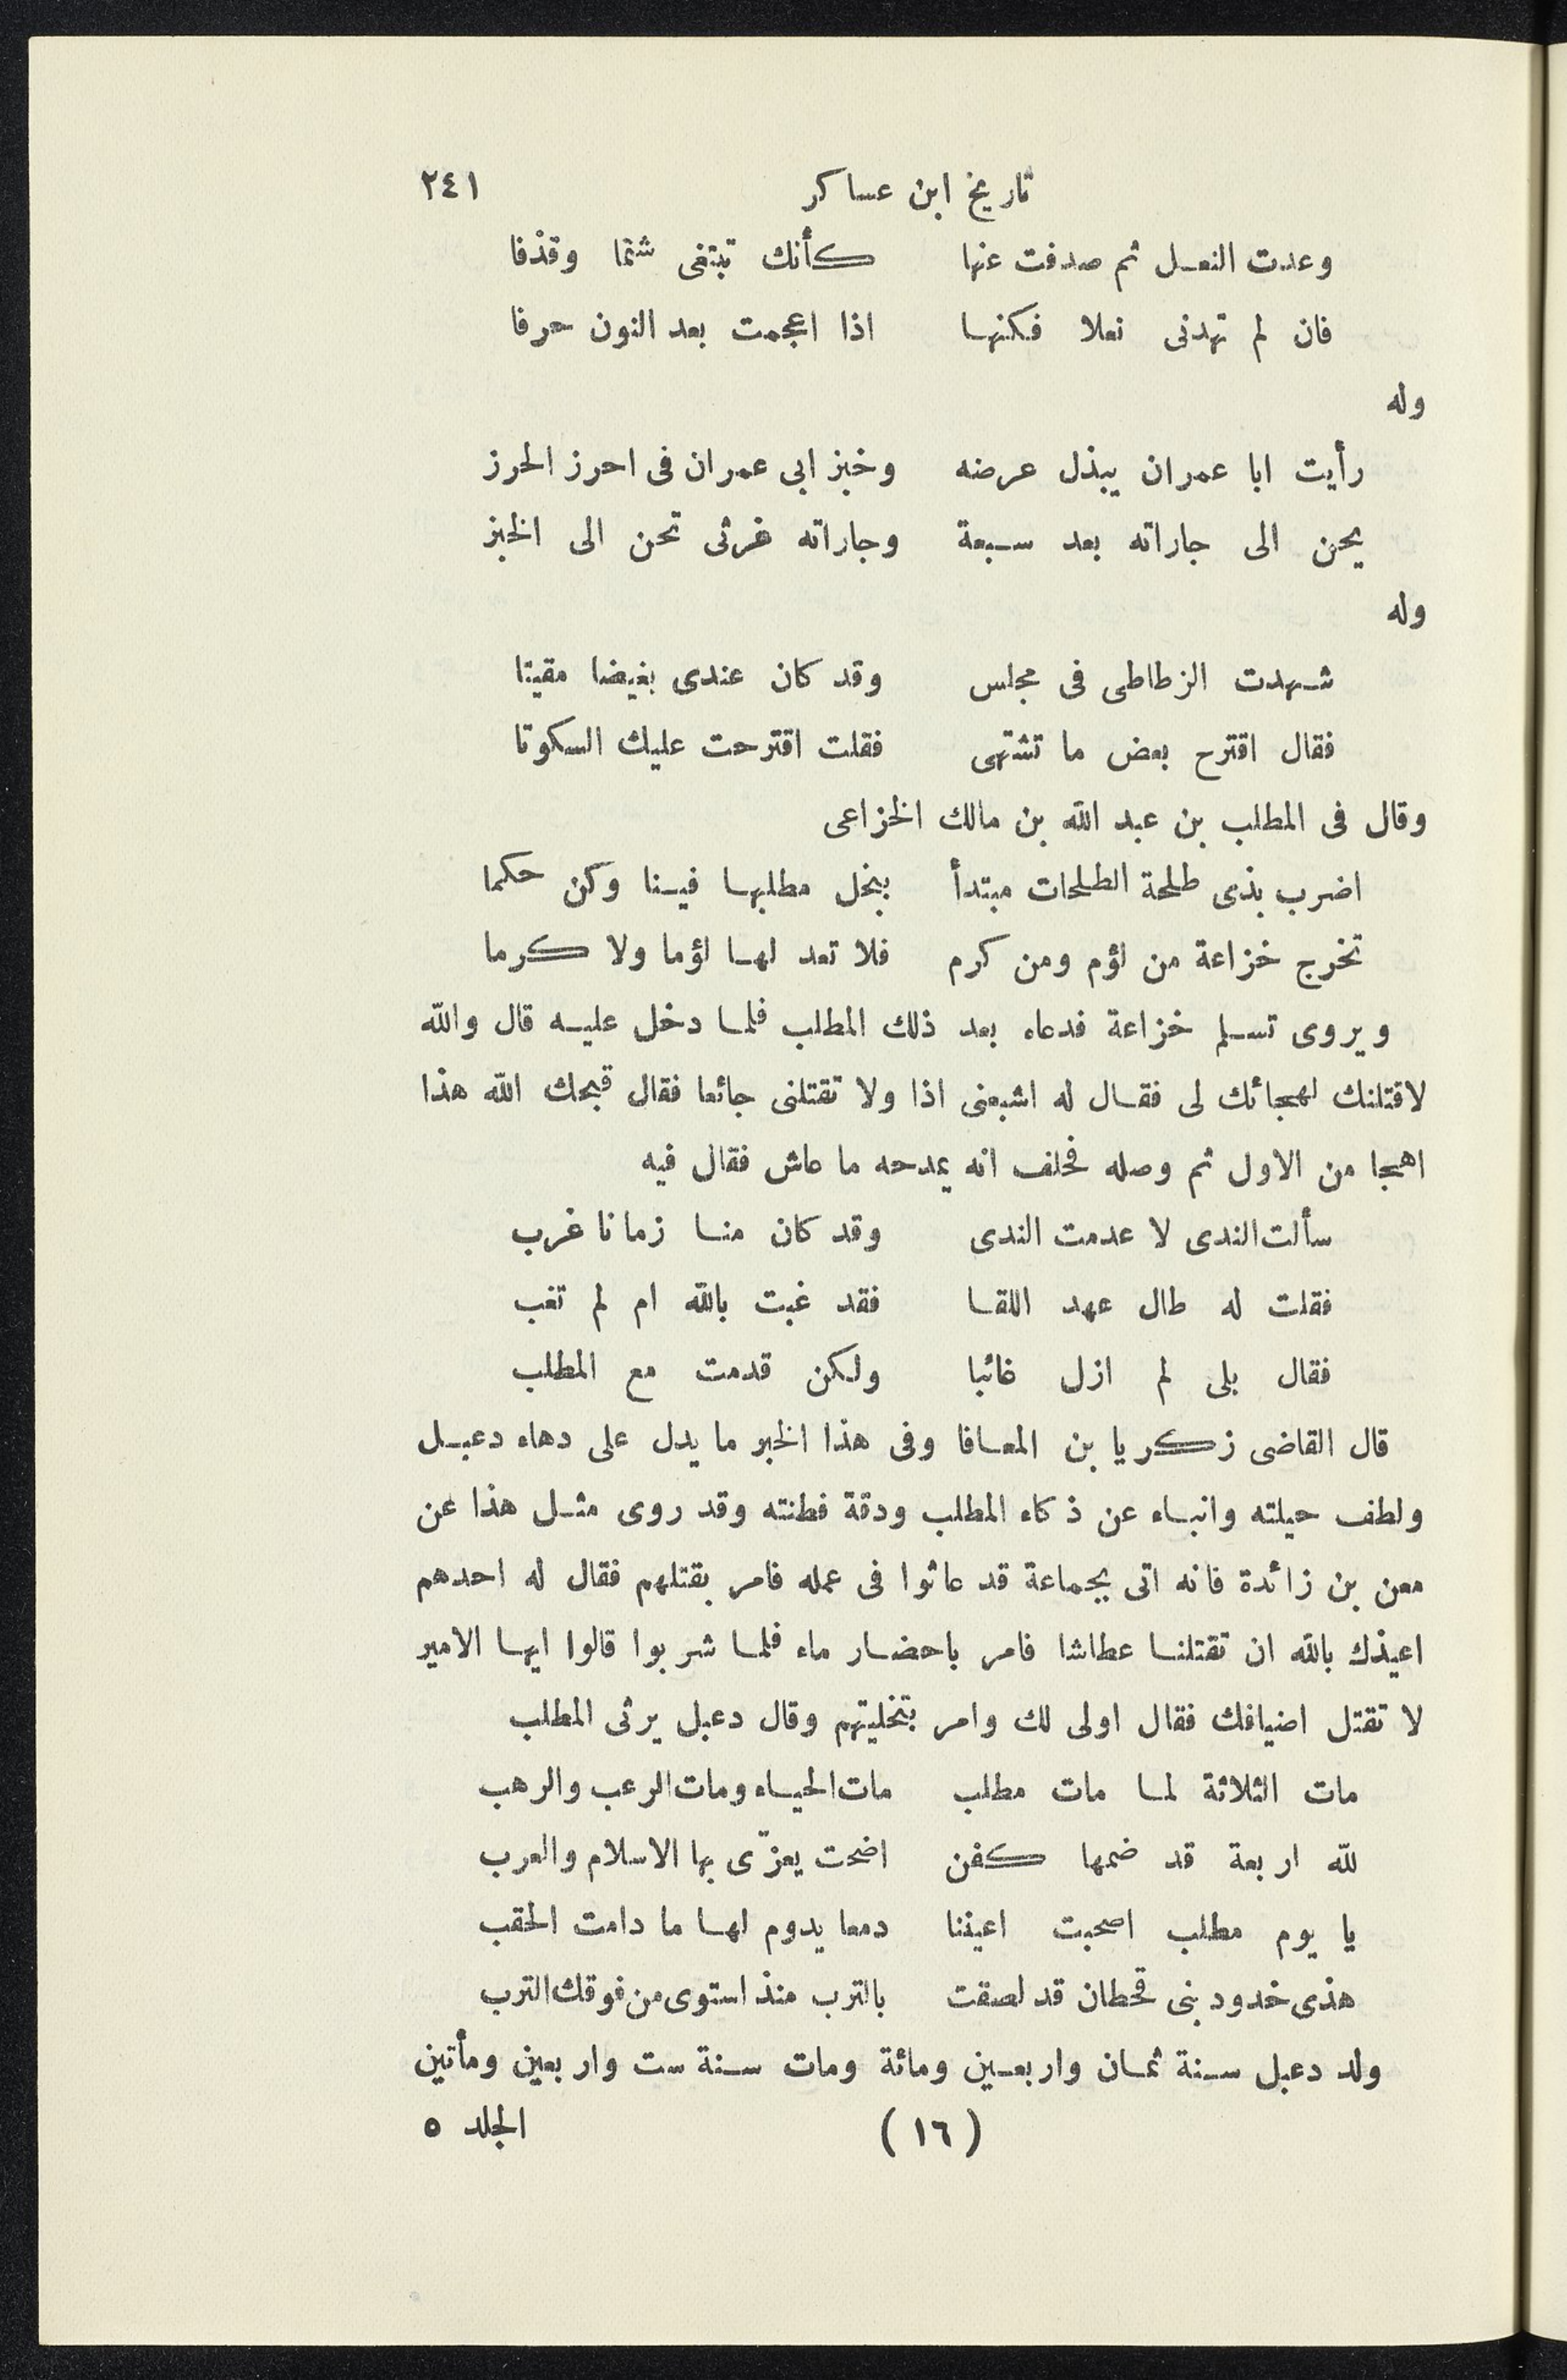 تاريخ ابن عساكر ٢٤١
وعدت النعل ثم صدفت عنها كأنك تبتغى شتما وقذفا
فان لم تهدنى نعلا فكنها اذا اعجمت بعد النون حرفا
وله
رأيت ابا عمران يبذل عرضه وخبز ابى عمران فى احرز الحرز
يحن الى جاراته بعد سبعة وجاراته غرثى تحن الى الخبز
وله
شهدت الزطاطى فى مجلس وقد كان عندى بغيضا مقيتا
فقال اقترح بعض ما تشتهى فقلت اقترحت عليك السكوتا
وقال فى المطلب بن عبد الله بن مالك الخزاعى
اضرب بذى طلحة الطلحات مبتدأ ببخل مطلبها فينا وكن حكما
تخرج خزاعة من لؤم ومن كرم فلا تعد لها لؤما ولا كرما
ويروى تسلم خزاعة فدعاه بعد ذلك المطلب فلما دخل عليه قال والله
لاقتلنك لهجائك لى فقال له اشبعنى اذا ولا تقتلنى جائعا فقال قبحك الله هذا
اهجا من الاول ثم وصله فحلف انه يمدحه ما عاش فقال فيه
سألت الندى لا عدمت الندى وقد كان منا زمانا غرب
فقلت له طال عهد اللقا فقد غبت بالله ام لم تغب
فقال بلى لم ازل غائبا ولكن قدمت مع المطلب
قال القاضى زكريا بن المعافا وفى هذا الخبر ما يدل على دهاء دعبل
ولطف حيلته وانباء عن ذكاء المطلب ودقة فطنته وقد روى مثل هذا عن
معن بن زائدة فانه اتى بجماعة قد عاثوا فى عمله فامر بقتلهم فقال له احدهم
اعيذك بالله ان تقتلنا عطاشا فامر باحضار ماء فلما شربوا قالوا ايها الامير
لا تقتل اضيافك فقال اولى لك وامر بتخليتهم وقال دعبل يرثى المطلب
مات الثلاثة لما مات مطلب مات الحياء ومات الرعب والرهب
لله اربعة قد ضمها كفن اضحت يعزّى بها الاسلام والعرب
يا يوم مطلب اصحبت اعيننا دمعا يدوم لها ما دامت الحقب
هذى خدود بنى قحطان قد لصقت بالترب منذ استوى من فوقك الترب
ولد دعبل سنة ثمان واربعين ومائة ومات سنة ست واربعين ومأتين
(١٦) الجلد ٥